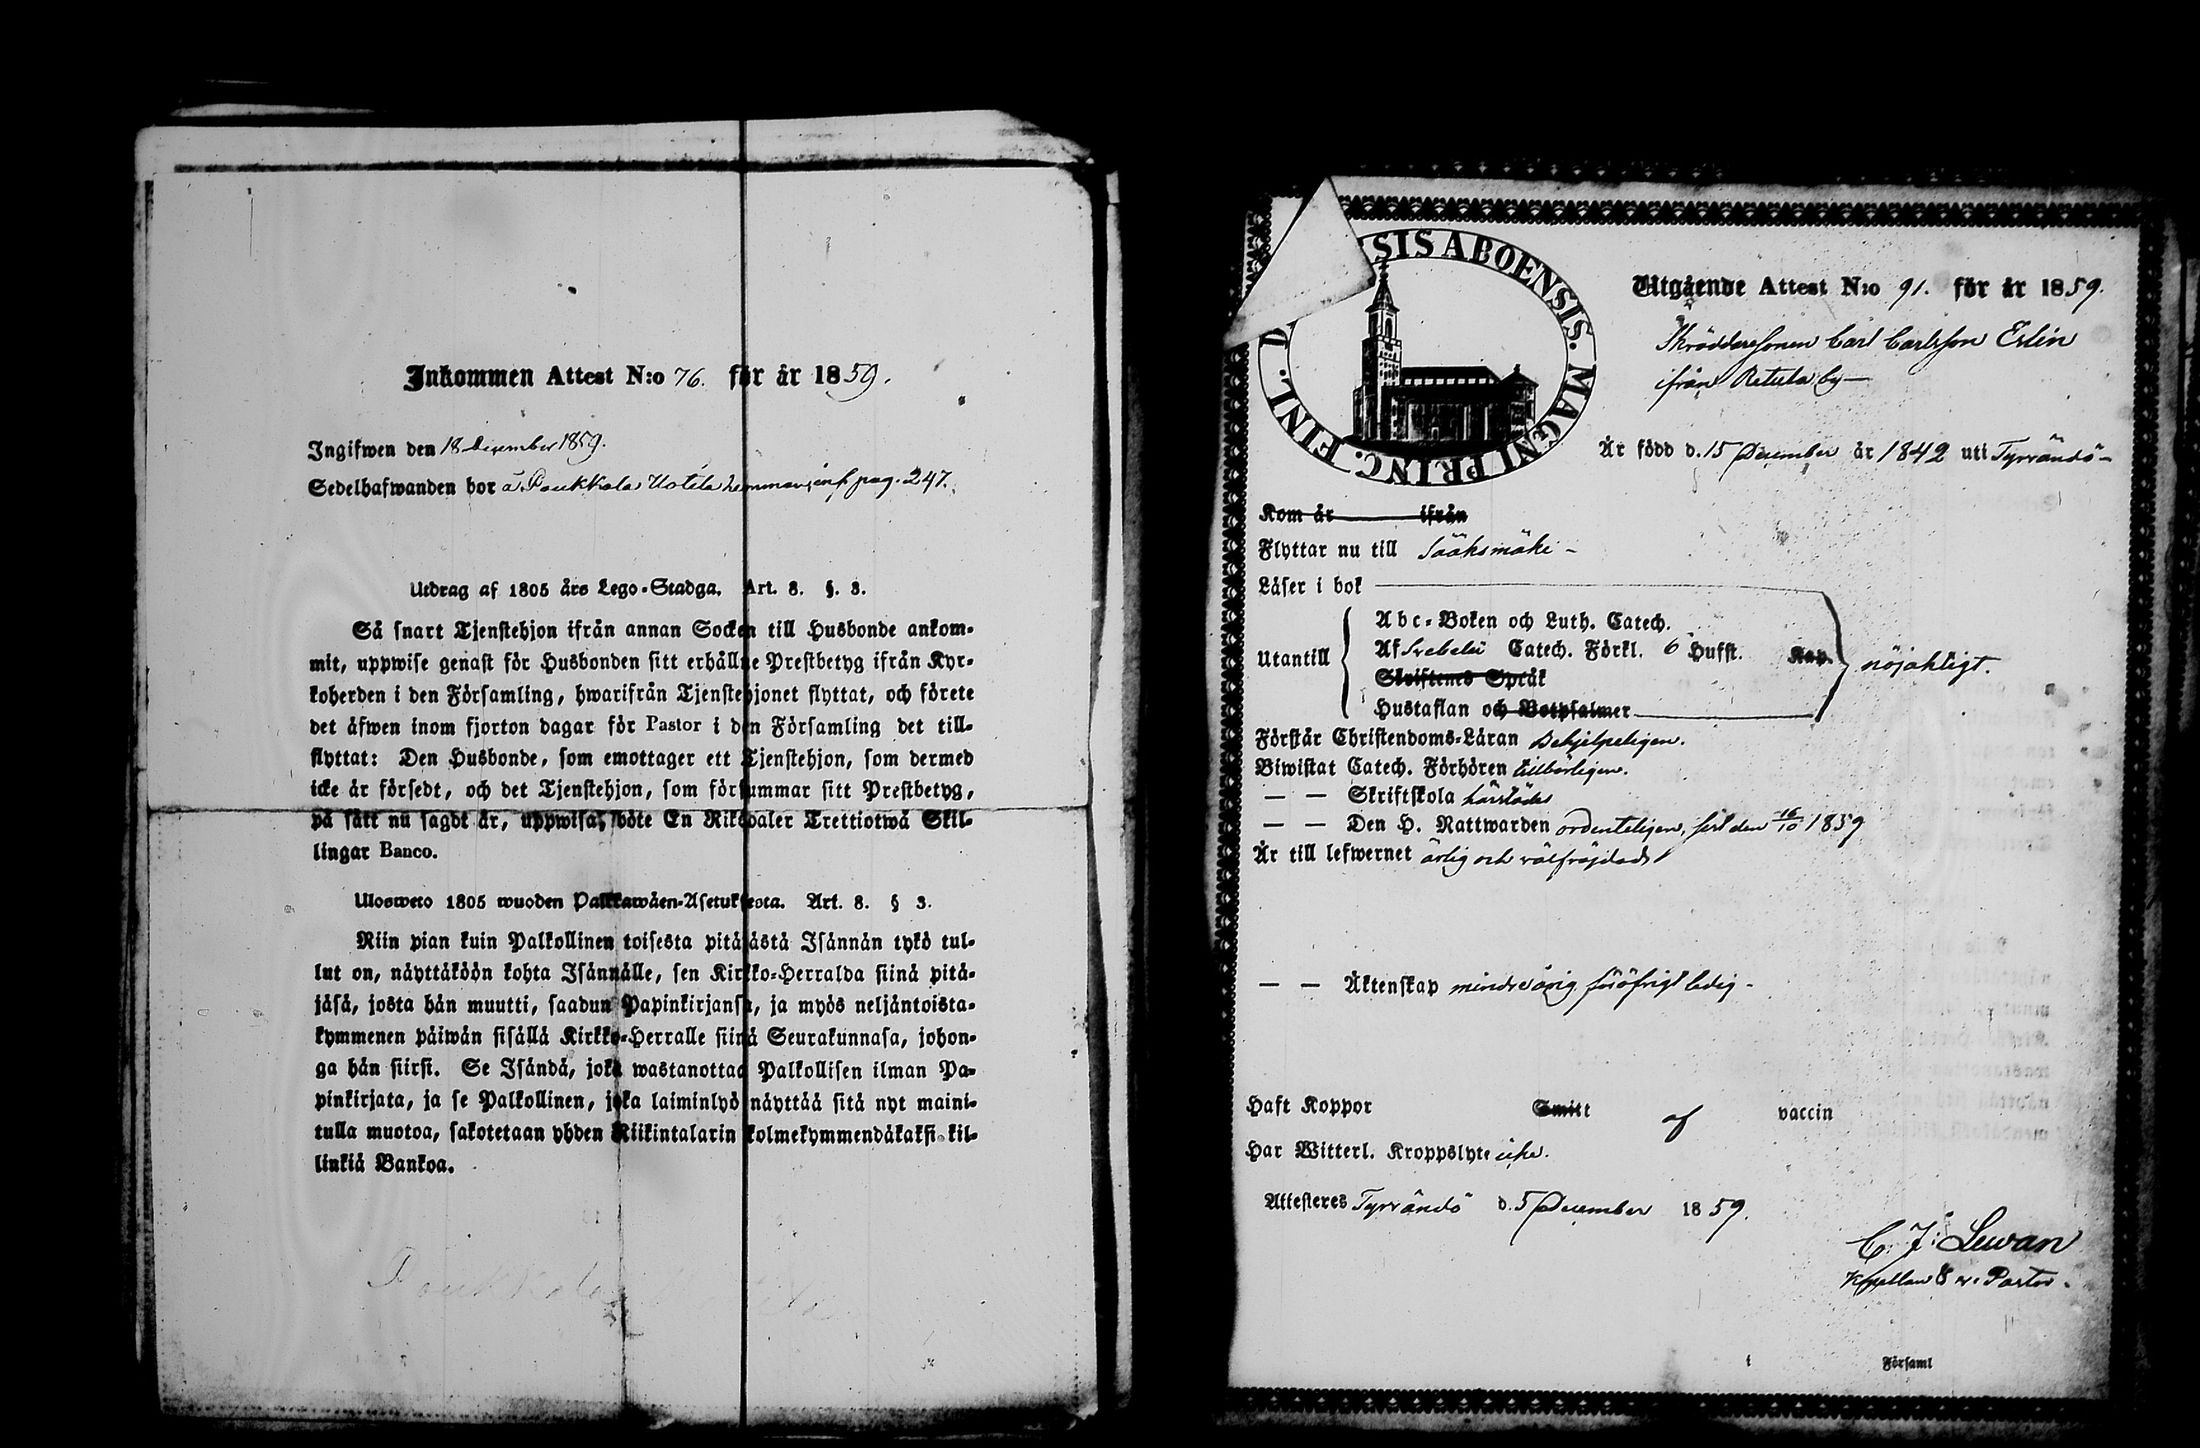 Inkommen Attest N:o 76. för år 1859.
Ingifwen den 18 December 1859.
Sedelhafwanden bor å Paukkola Uotila hemman, inf pag. 247.
Utdrag af 1805 års Lego-Stadga. Art. 8. §. 3.
Så snart Tjenstehjon ifrån annan Socken till Husbonde ankom-
mit, uppwise genast för Husbonden sitt erhållne Prestbetyg ifrån Kyr-
koherden i den Församling, hwarifrån Tjenstehjonet flyttat, och förete
det äfwen inom fjorton dagar för Pastor i den Församling det till-
flyttat: Den Husbonde, som emottager ett Tjenstehjon, som dermed
icke är försedt, och det Tjenstehjon, som försummar sitt Prestbetyg,
på sätt nu sagdt är, uppwisa, böte En Riksdaler Trettiotwå Skil-
lingar Banco.
Ulosweto 1805 wuoden Palkkawäen-Asetuksesta. Art. 8. § 3.
Niin pian kuin Palkollinen toisesta pitäjästä Isännän tykö tul-
lut on, näyttäköön kohta Isännälle, sen Kirkko-Herralda siinä pitä-
jäsä, josta hän muutti, saadun Papinkirjansa, ja myös neljäntoista-
kymmenen päiwän sisällä Kirkko-Herralle siinä Seurakunnasa, johon-
ga hän siirsi. Se Isändä, joka wastanottaa Palkollisen ilman Pa-
pinkirjata, ja se Palkollinen, joka laiminlyö näyttää sitä nyt maini-
tulla muotoa, sakotetaan yhden Riikintalarin kolmekymmendäkaksi kil-
linkiä Bankoa.
SIS ABOENSIS. MAGNI PRINC. FINL. D
Utgående Attest N:o 91. för år 1859.
Skräddaresonen Carl Carlsson Eslin
ifrån Retula by—
År född d. 15 December år 1842 uti Tyrvändö—
Kom år ifrån
Flyttar nu till Sääksmäki –
Läser i bok
Utantill
Abc-Boken och Luth. Catech.
Af Svebelii Catech. Förkl. 6 Hufst. Kap.
Skriftenes Språk
Hustaflan och Botpsalmer
nöjaktigt.
Förstår Christendoms-Läran Behjelpeligen.
Biwistat Catech. Förhören tillbörligen.
— — Skriftskola härstädes
— — Den H. Nattwarden ordenteligen, sist den 16/10 1859
Är till lefwernet ärlig och välfräjdad
— — Äktenskap minderårig föröfrigt ledig -
Haft Koppor Smitt af vaccin
Har Witterl. Kroppslyte icke.
Attesteres Tyrvändö d. 5 December 1859.
C. J: Lewan
Kapellan & v. Pastor.
i Församl
Paukkola Uotila